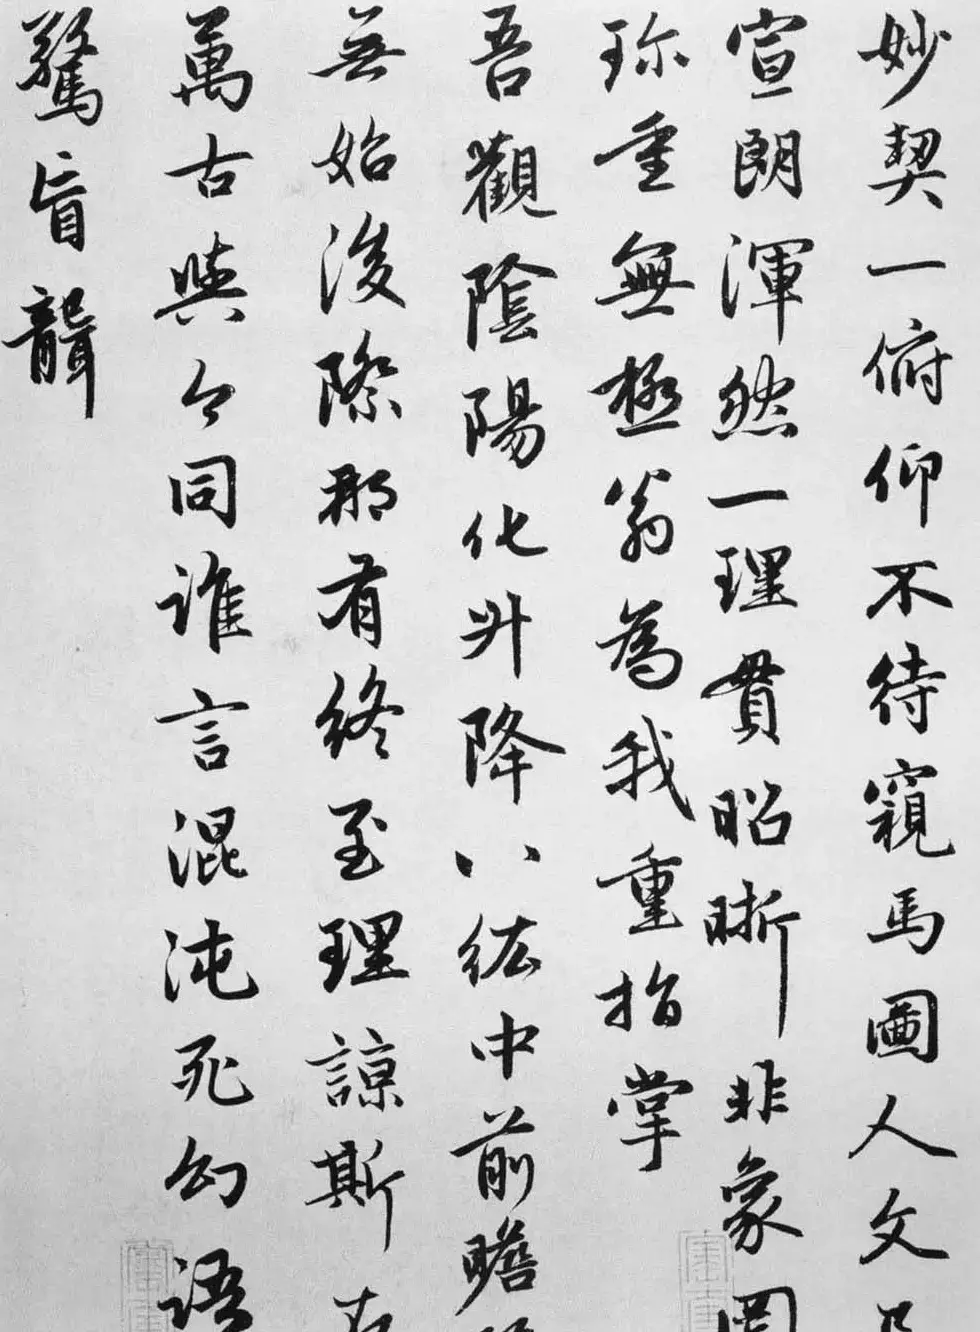 妙契一俯仰不待窺馬圖人文
宣朗渾然一理貫昭晰非象罔
珎重無極翁為我重指掌
吾觀陰陽化升降八紘中前瞻
无始後際那有終至理諒斯
萬古與今同誰言混沌死幻語
驚盲聾